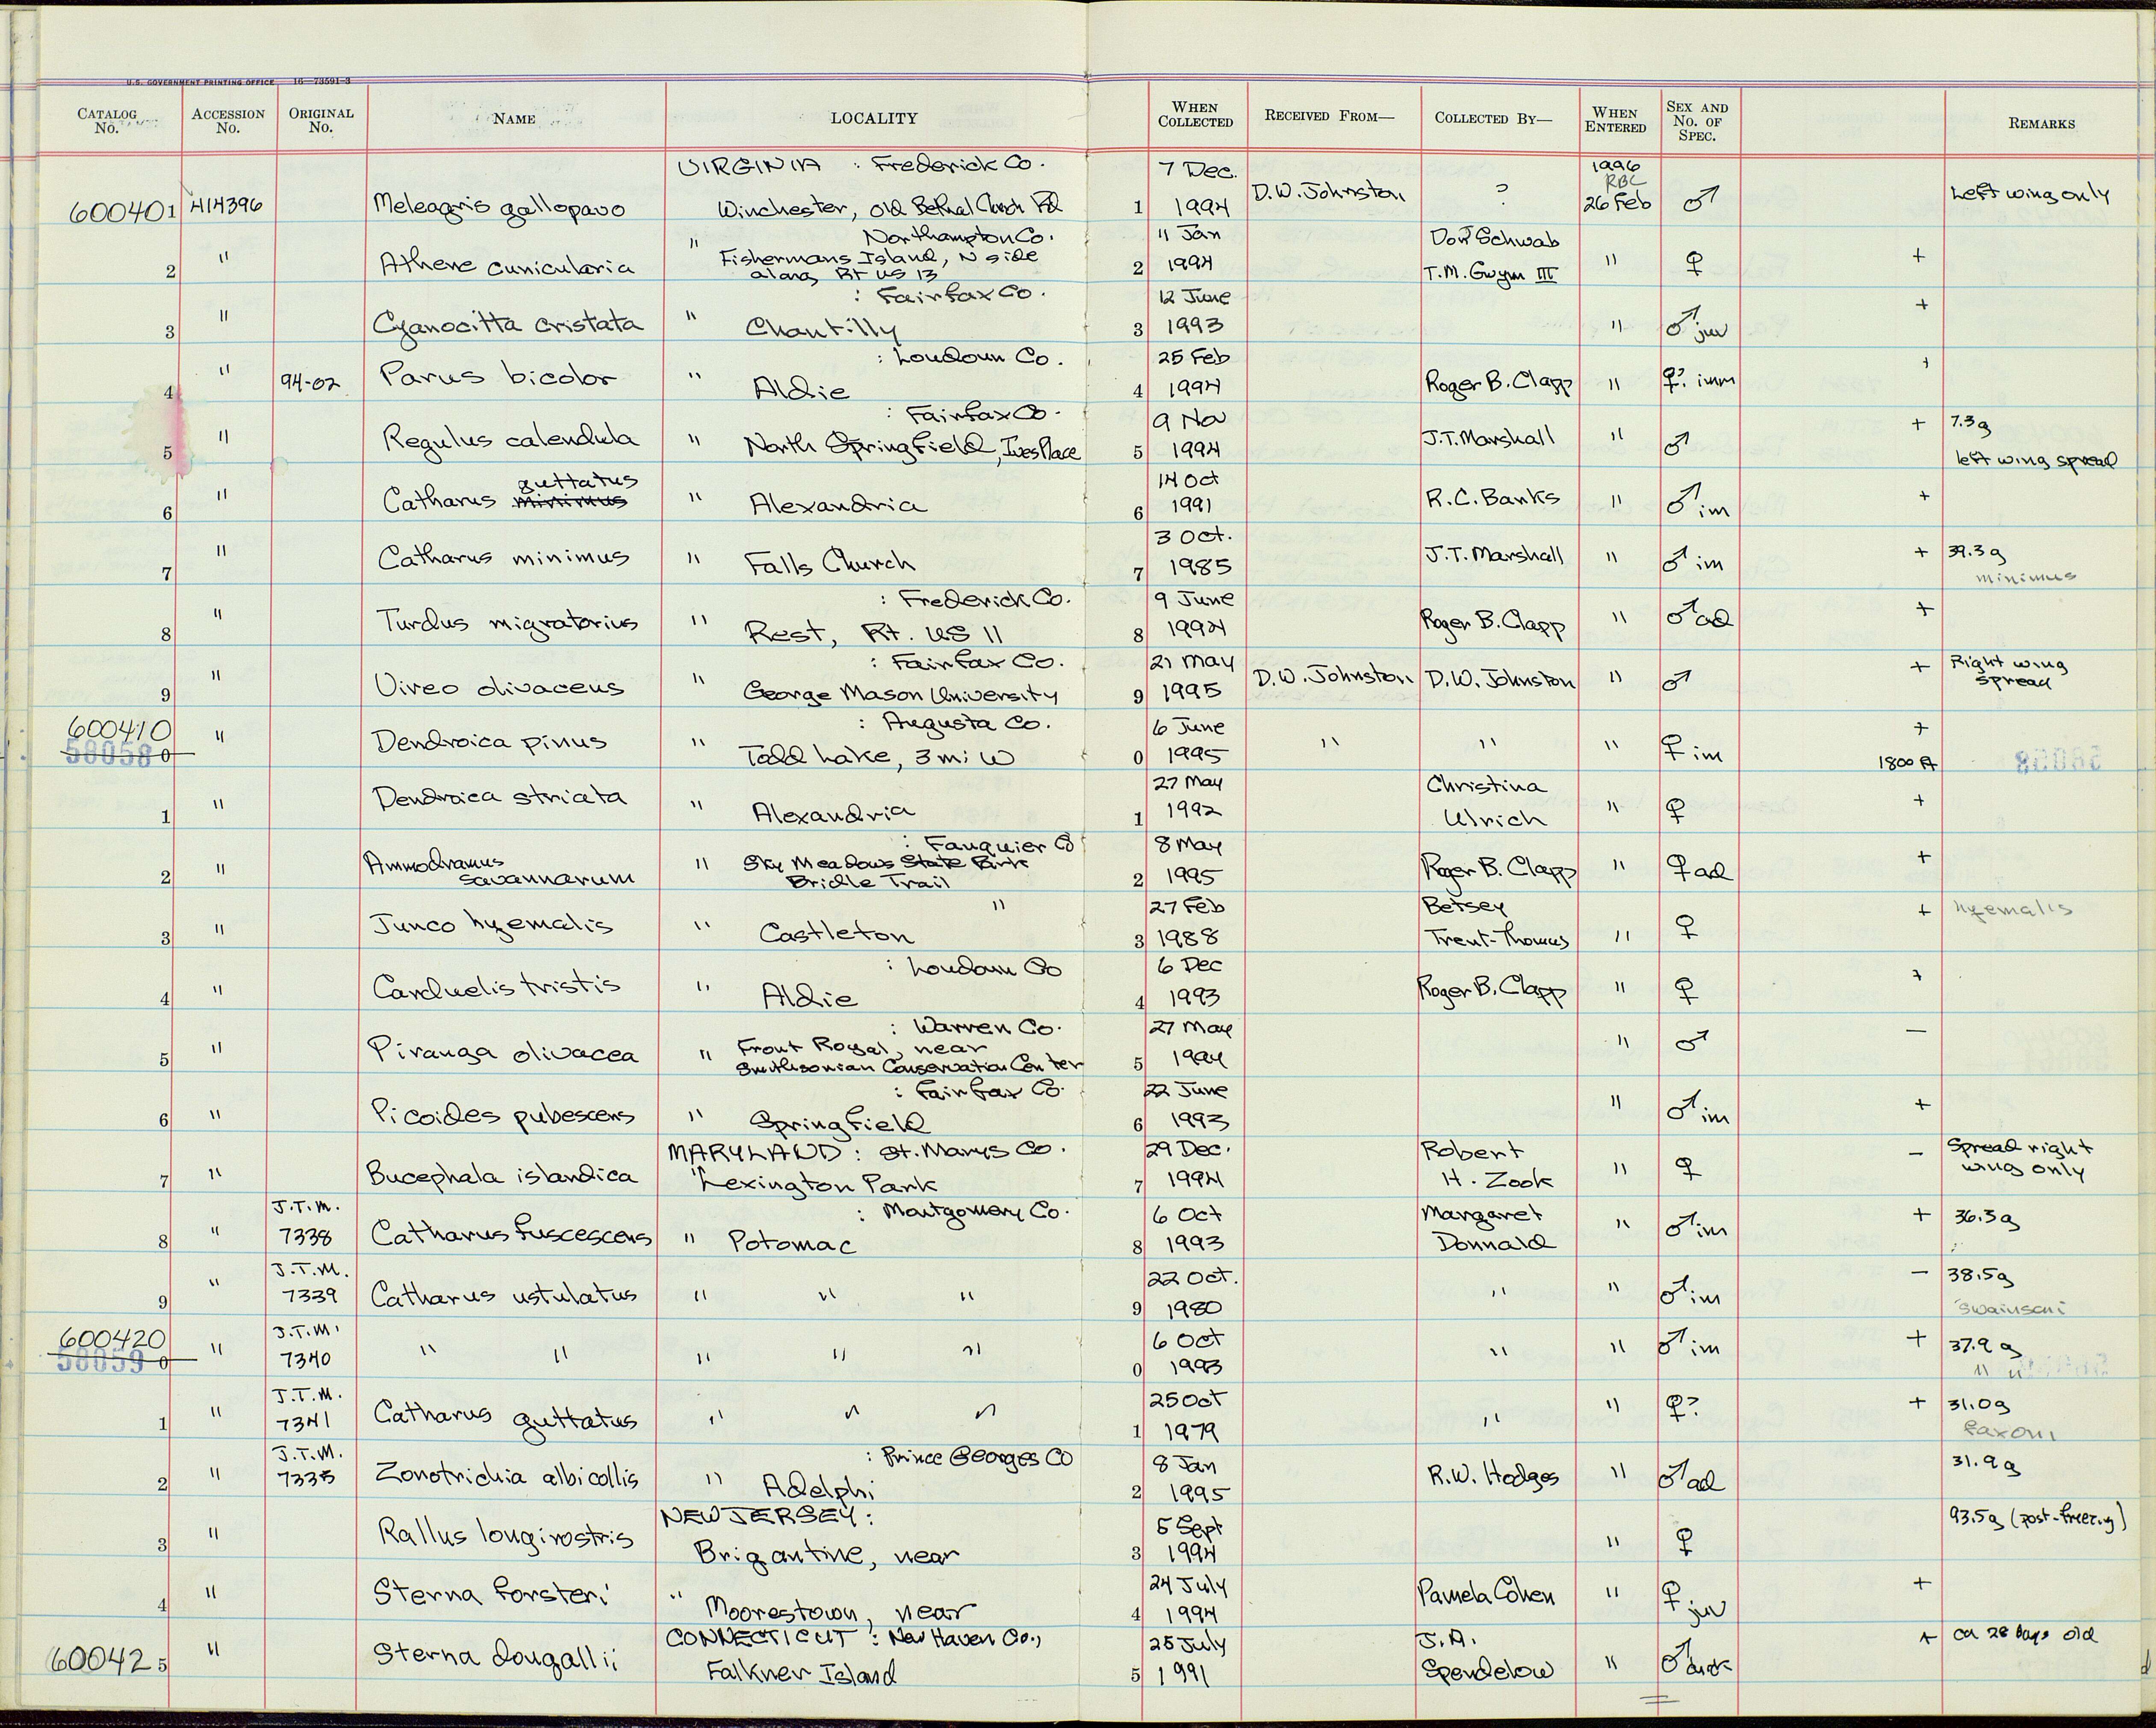 U.S. GOVERNMENT PRINTING OFFICE 16—73591-3
CATALOG No. ACCESSION No. ORIGINAL No. NAME LOCALITY WHEN COLLECTED RECEIVED FROM— COLLECTED BY— WHEN ENTERED SEX AND No. OF SPEC. REMARKS
VIRGINIA : Frederick Co. 7 Dec. 1996 RBC
600401 414396 Meleagris gallopavo Winchester, Old Bethal Church Rd 1 1994 D.W. Johnston ? 26 Feb ♂ Left wing only
" Northampton Co. 11 Jan Don Schwab
2 " Athene cunicularia Fishermans Island, N side along Rt US 13 2 1994 T.M. Gwym III " ♀ +
: Fairfax Co. 12 June
3 " Cyanocitta cristata " Chantilly 3 1993 " ♂ juv +
: Loudoun Co. 25 Feb
4 " 94-02 Parus bicolor " Aldie 4 1994 Roger B. Clapp " ♀? imm +
: Fairfax Co. 9 Nov
5 " Regulus calendula " North Springfield, Ives Place 5 1994 J.T. Marshall " ♂ + 7.3 g left wing spread
guttatus 14 Oct
6 " Catharus minimus " Alexandria 6 1991 R.C. Banks " ♂ im +
3 Oct.
7 " Catharus minimus " Falls Church 7 1985 J.T. Marshall " ♂ im + 39.3 g minimus
: Frederick Co. 9 June
8 " Turdus migratorius " Rest, Rt. US 11 8 1994 Roger B. Clapp " ♂ ad +
: Fairfax Co. 21 May
9 " Vireo olivaceus " George Mason University 9 1995 D.W. Johnston D.W. Johnston " ♂ + Right wing spread
600410 : Augusta Co. 6 June
58058 0 " Dendroica pinus " Todd Lake, 3 mi W 0 1995 " " " ♀ im + 1800 ft
27 May Christina
1 " Dendroica striata " Alexandria 1 1992 Ulrich " ♀ +
: Fauquier Co 8 May
2 " Ammodramus savannarum " Sky Meadows State Park Bridle Trail 2 1995 Roger B. Clapp " ♀ ad +
" 27 Feb Betsey
3 " Junco hyemalis " Castleton 3 1988 Trent-Thomas " ♀ + hyemalis
: Loudoun Co 6 Dec
4 " Carduelis tristis " Aldie 4 1993 Roger B. Clapp " ♀ +
: Warren Co. 27 May
5 " Piranga olivacea " Front Royal, near Smithsonian Conservation Center 5 1994 " ♂ —
: Fairfax Co. 22 June
6 " Picoides pubescens " Springfield 6 1993 " ♂ im +
MARYLAND : St. Marys Co. 29 Dec. Robert
7 " Bucephala islandica " Lexington Park 7 1994 H. Zook " ♀ — Spread right wing only
J.T.M. : Montgomery Co. 6 Oct Margaret
8 " 7338 Catharus fuscescens " Potomac 8 1993 Donnald " ♂ im + 36.3 g
J.T.M. 22 Oct.
9 " 7339 Catharus ustulatus " " " 9 1980 " " ♂ im — 38.5 g swainsoni
600420 J.T.M. 6 Oct
58059 0 " 7340 " " " " " 0 1993 " " ♂ im + 37.9 g " "
J.T.M. 25 Oct
1 " 7341 Catharus guttatus " " " 1 1979 " " ♀? + 31.0 g faxoni
J.T.M. : Prince Georges Co 8 Jan
2 " 7335 Zonotrichia albicollis " Adelphi 2 1995 R.W. Hodges " ♂ ad 31.9 g
NEW JERSEY : 5 Sept
3 " Rallus longirostris Brigantine, near 3 1994 " ♀ 93.5 g (post-freezing)
24 July
4 " Sterna forsteri " Moorestown, near 4 1994 Pamela Cohen " ♀ juv +
CONNECTICUT : New Haven Co., 25 July J.A.
600425 " Sterna dougallii Falkner Island 5 1991 Spendelow " ♂ + ca 28 days old